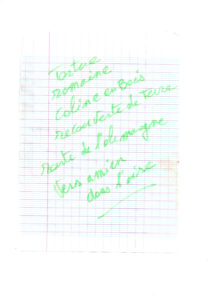 Tortue
romaine
Coline en Bois
recouverte de Terre
route de l'alemagne
Vers amien
dans l'oise